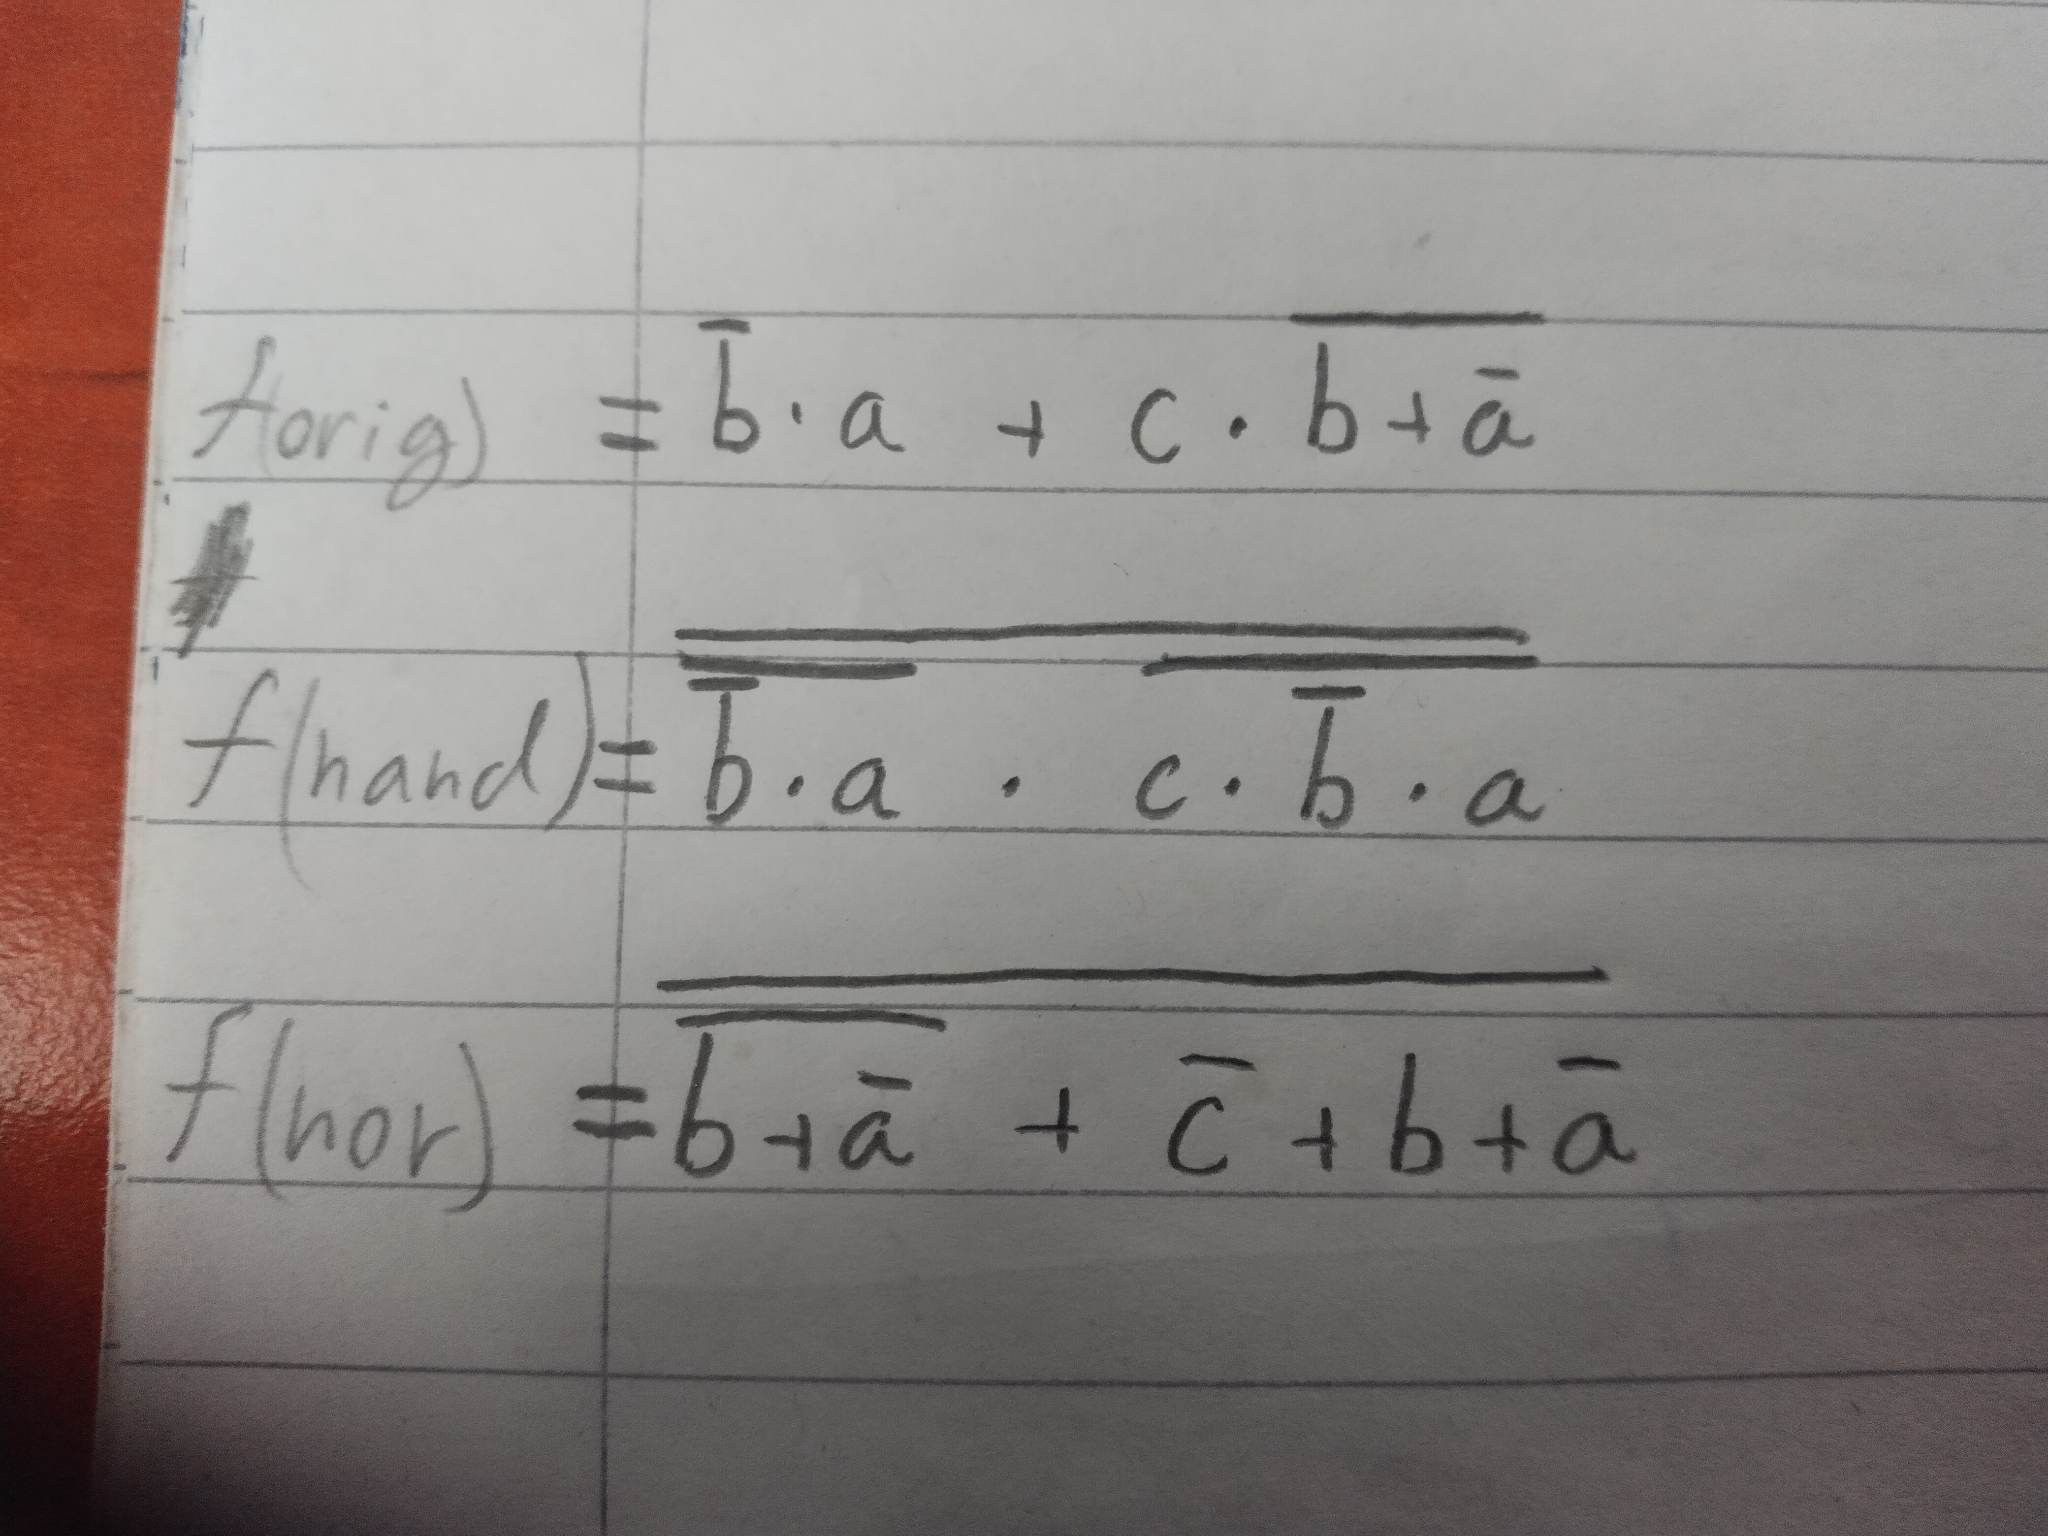 f(orig) = b̅ · a + c · \overline{b + a̅}
f(nand) = \overline{\overline{b̅ · a} · \overline{c · b̅ · a}}
f(nor) = \overline{\overline{b + a̅} + c̅ + b + a̅}